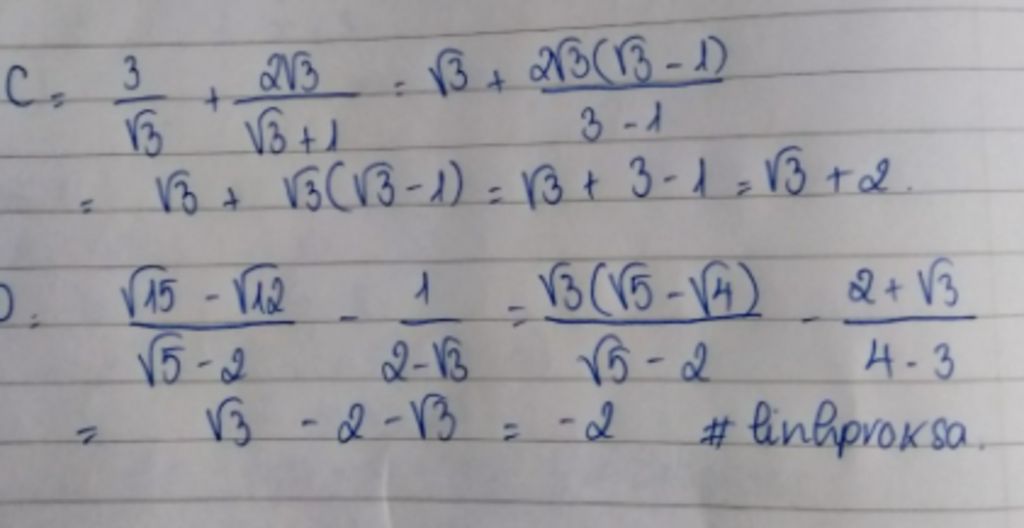 C = 3/√3 + 2√3/(√3 + 1) = √3 + 2√3(√3 - 1)/(3 - 1)
= √3 + √3(√3 - 1) = √3 + 3 - 1 = √3 + 2.
D = (√15 - √12)/(√5 - 2) - 1/(2 - √3) = √3(√5 - √4)/(√5 - 2) - (2 + √3)/(4 - 3)
= √3 - 2 - √3 = -2 # linhproxsa.